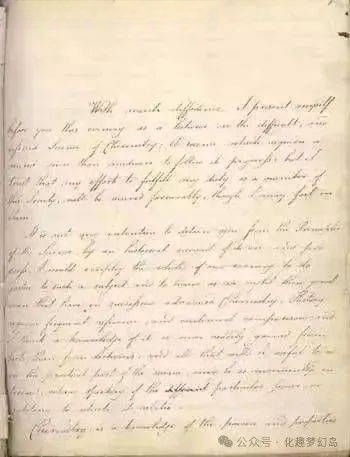 With much diffidence I present myself
before you this evening as a lecturer on the difficult, and
refined Science of Chemistry; A science which requires a
mind more than to follow its progress; but I
trust that my effort to fulfill my duty as a member of
this Society, will be received favourably, though I may fail in
them.
It is not my intention to detain you from the Principles
of the Science by an historical account of its rise and pro
gress. I would occupy the whole of our evening to do
justice to such a subject and to trace as we
that have in succession advanced Chemistry. History
requires frequent reference, and and
I think a knowledge of it is more readily gained from
books than from lectures; and all that will is useful to us
in the practical part of the science, may be as
when speaking of the different particular powers, or
to which it relates
Chemistry is a knowledge of the powers and properties
公众号·化趣梦幻岛